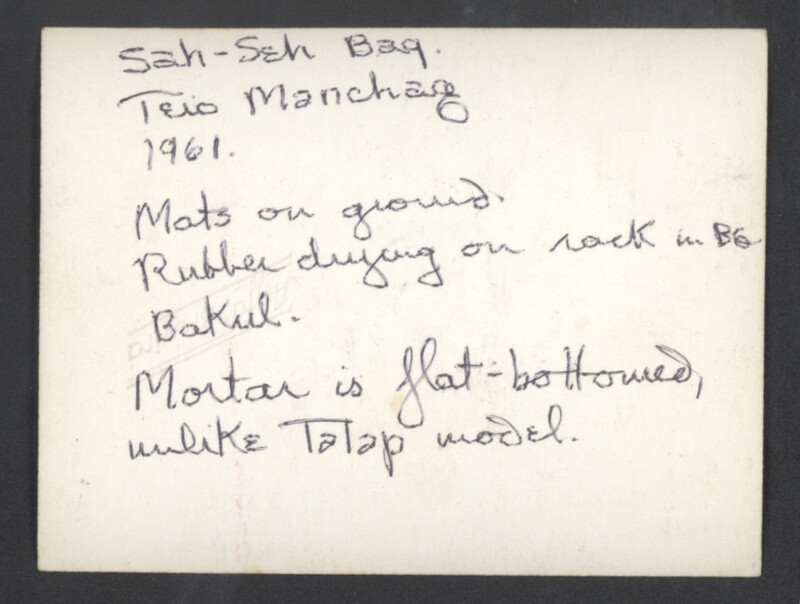 Sah-Seh Baq.
Teio Manchaq
1961.
Mats on ground.
Rubber drying on rack in BG
Bakul.
Mortar is flat-bottomed,
unlike TaTap model.